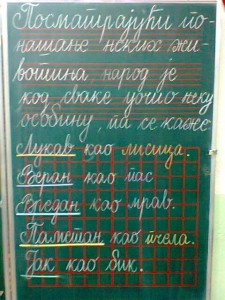 Посматрајући по-
нашање неких жи-
вотиња, народ је
код сваке уочио неку
особину, па се каже:
Лукав као лисица.
Веран као пас.
Вредан као мрав.
Паметан као пчела.
Јак као бик.